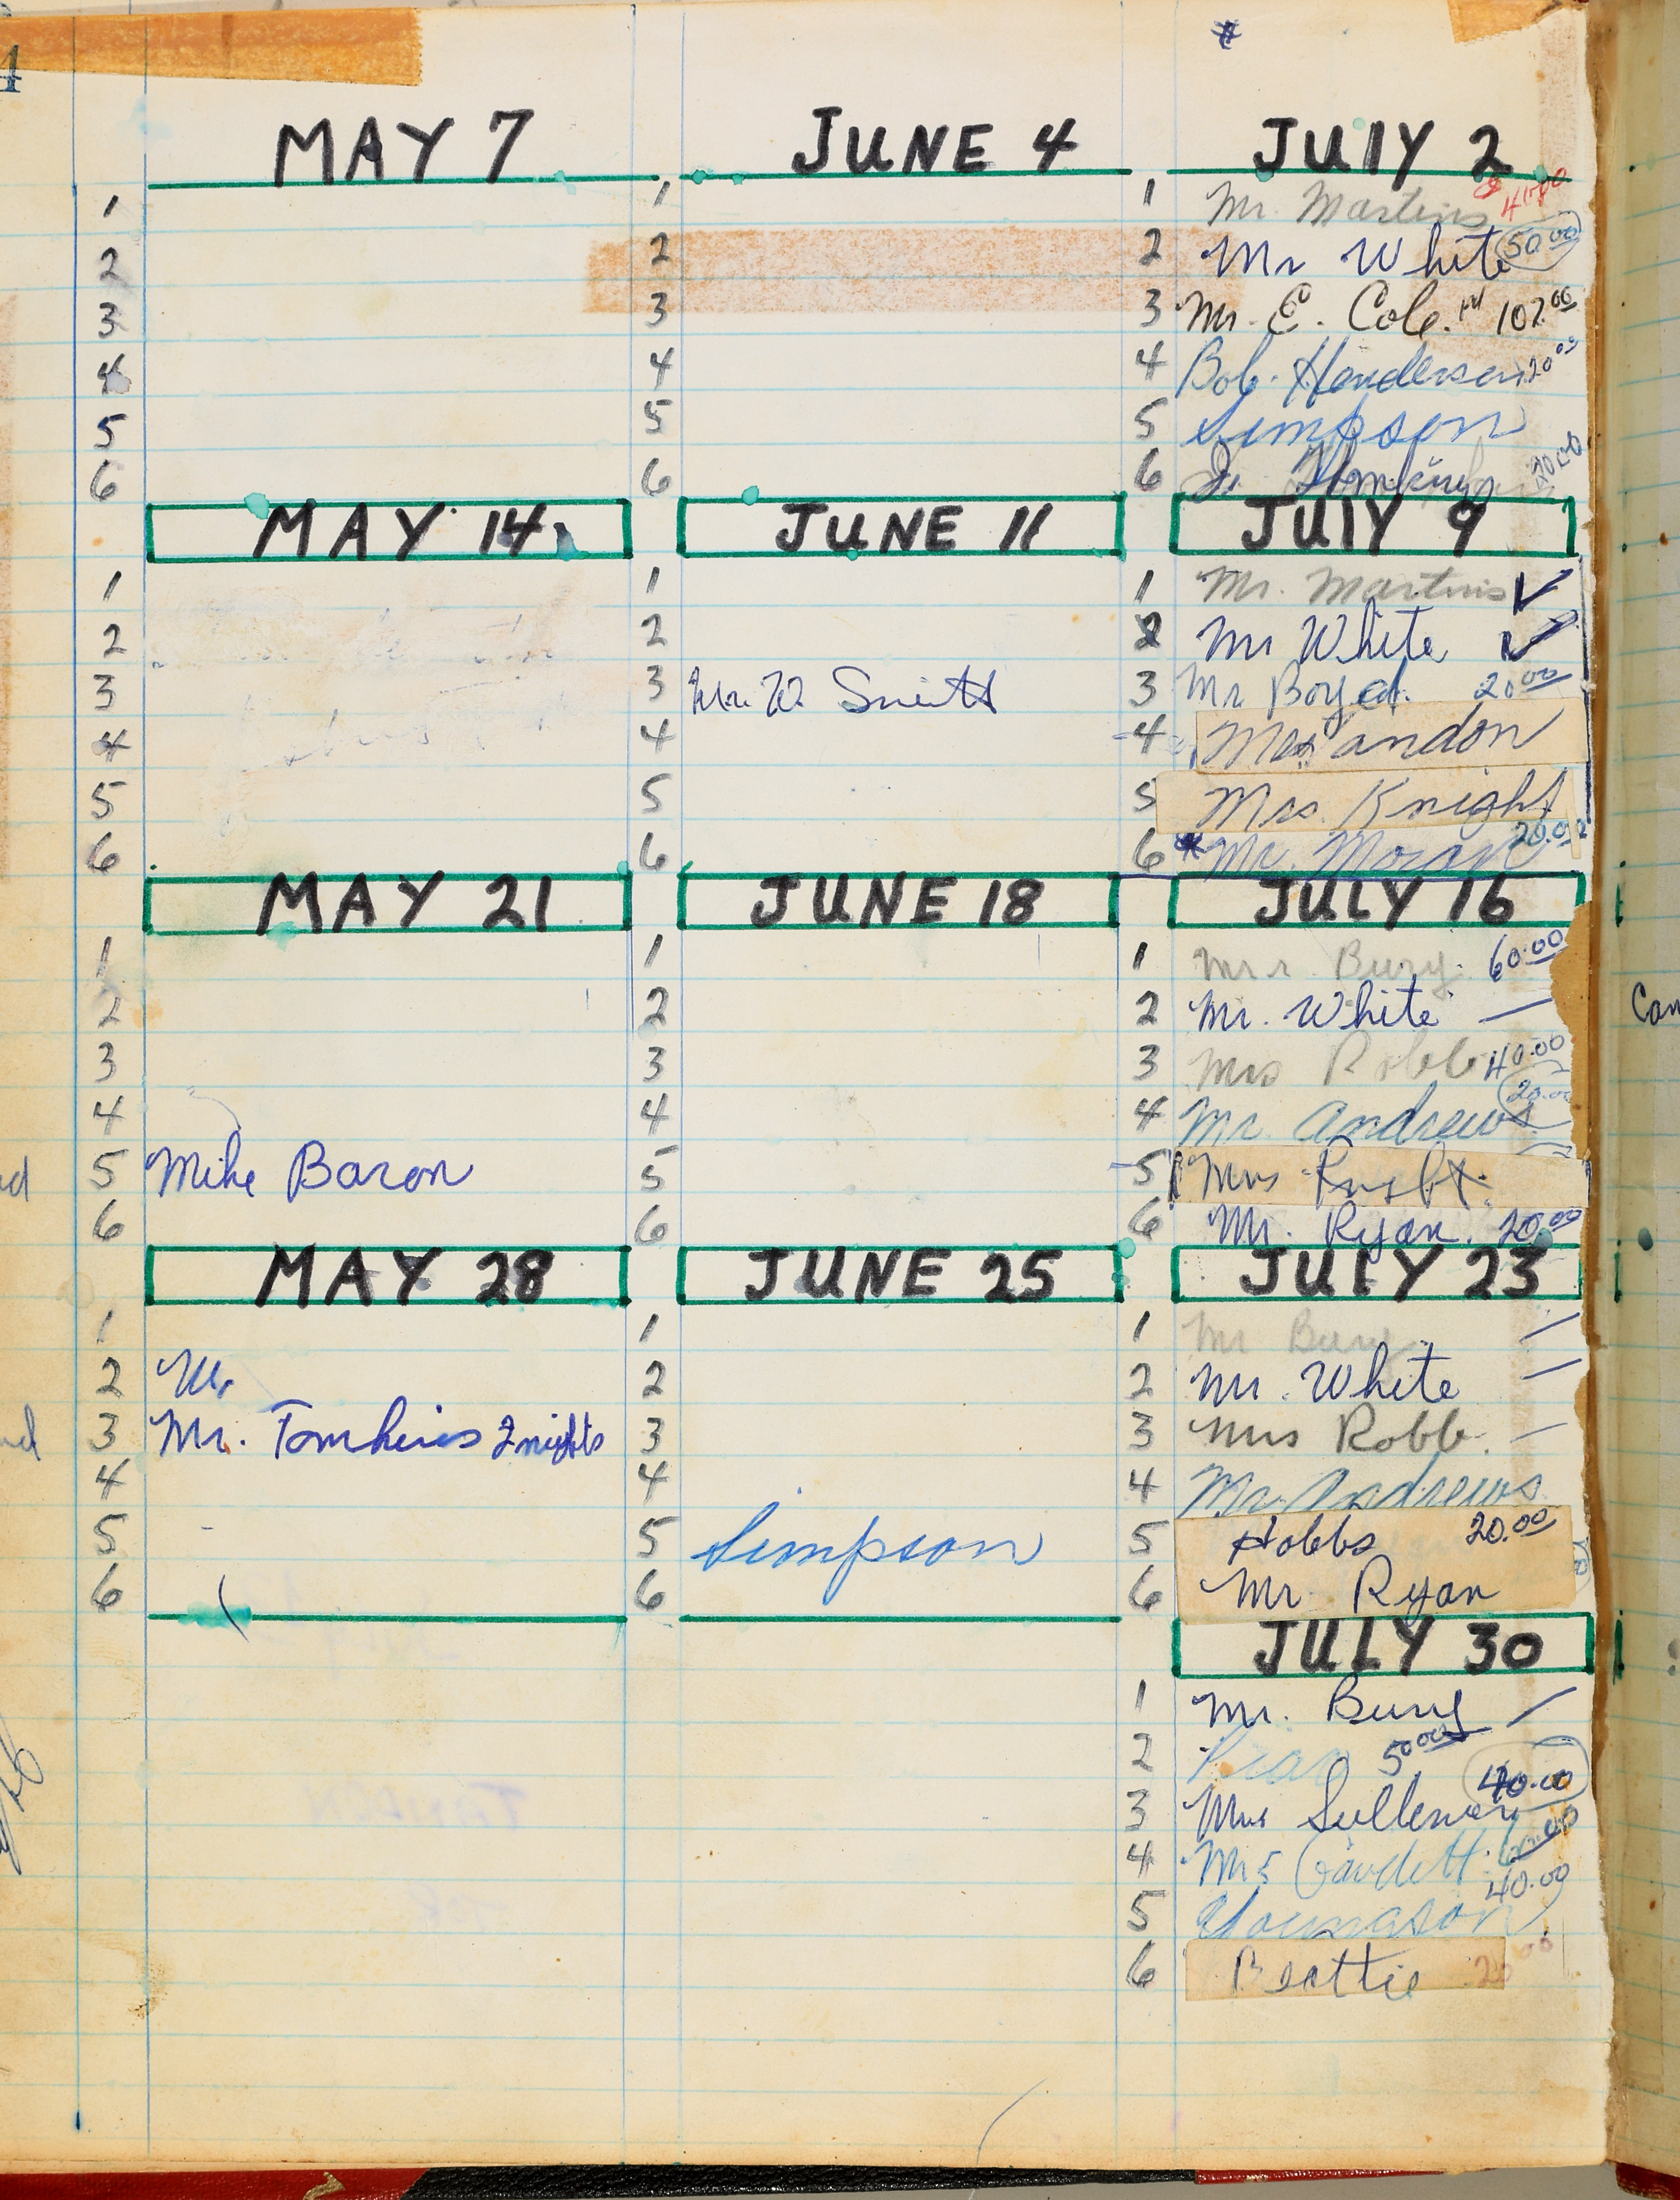 MAY 7
1
2
3
4
5
6
MAY 14
1
2
3
4
5
6
MAY 21
1
2
3
4
5 Mike Baron
6
MAY 28
1
2 Mr
3 Mr. Tomkins 2 nights
4
5
6
JUNE 4
1
2
3
4
5
6
JUNE 11
1
2
3 Mr. W Smith
4
5
6
JUNE 18
1
2
3
4
5
6
JUNE 25
1
2
3
4
5 Simpson
6
JULY 2
1 Mr. Martins
2 Mr White 50.00
3 Mr. E. Cole. 102.00
4 Bob Henderson 20.00
5 Simpson
6 J.
JULY 9
1 Mr. Martins ✓
2 Mr White ✓
3 Mr Boyed. 20.00
4
5 Mrs. Knight
6 Mr. Moran 20.00
JULY 16
1 Bury. 60.00
2 Mr. White —
3 Mrs Robb 40.00
4 Mr. Andrews 20.00
5 Mrs
6 Mr. Ryan. 20.00
JULY 23
1 Mr Bury
2 Mr. White
3 Mrs Robb.
4 Mr. Andrews
5 Hobbs 20.00
6 Mr. Ryan
JULY 30
1 Mr. Bury
2 50.00
3 Mrs 40.00
4
5 Youngson 40.00
6 Beattie 20.00